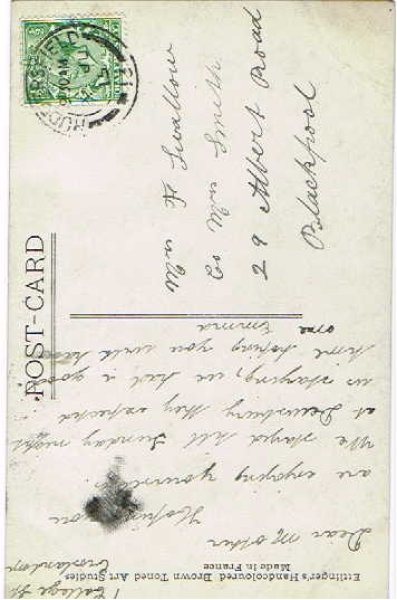 POST-CARD
Ettlinger's Handcoloured Brown Toned Art Studies
Made in France
College St
Crosland
Dear mother
Hoping you
are enjoying yourself
We stayed till Sunday night
at Dewsbury they expected
us staying, we had a good
time hoping you will have
one
Emma
HUDDERSFIELD
Mrs A Swallow
Co Mrs Smith
29 Albert Road
Blackpool